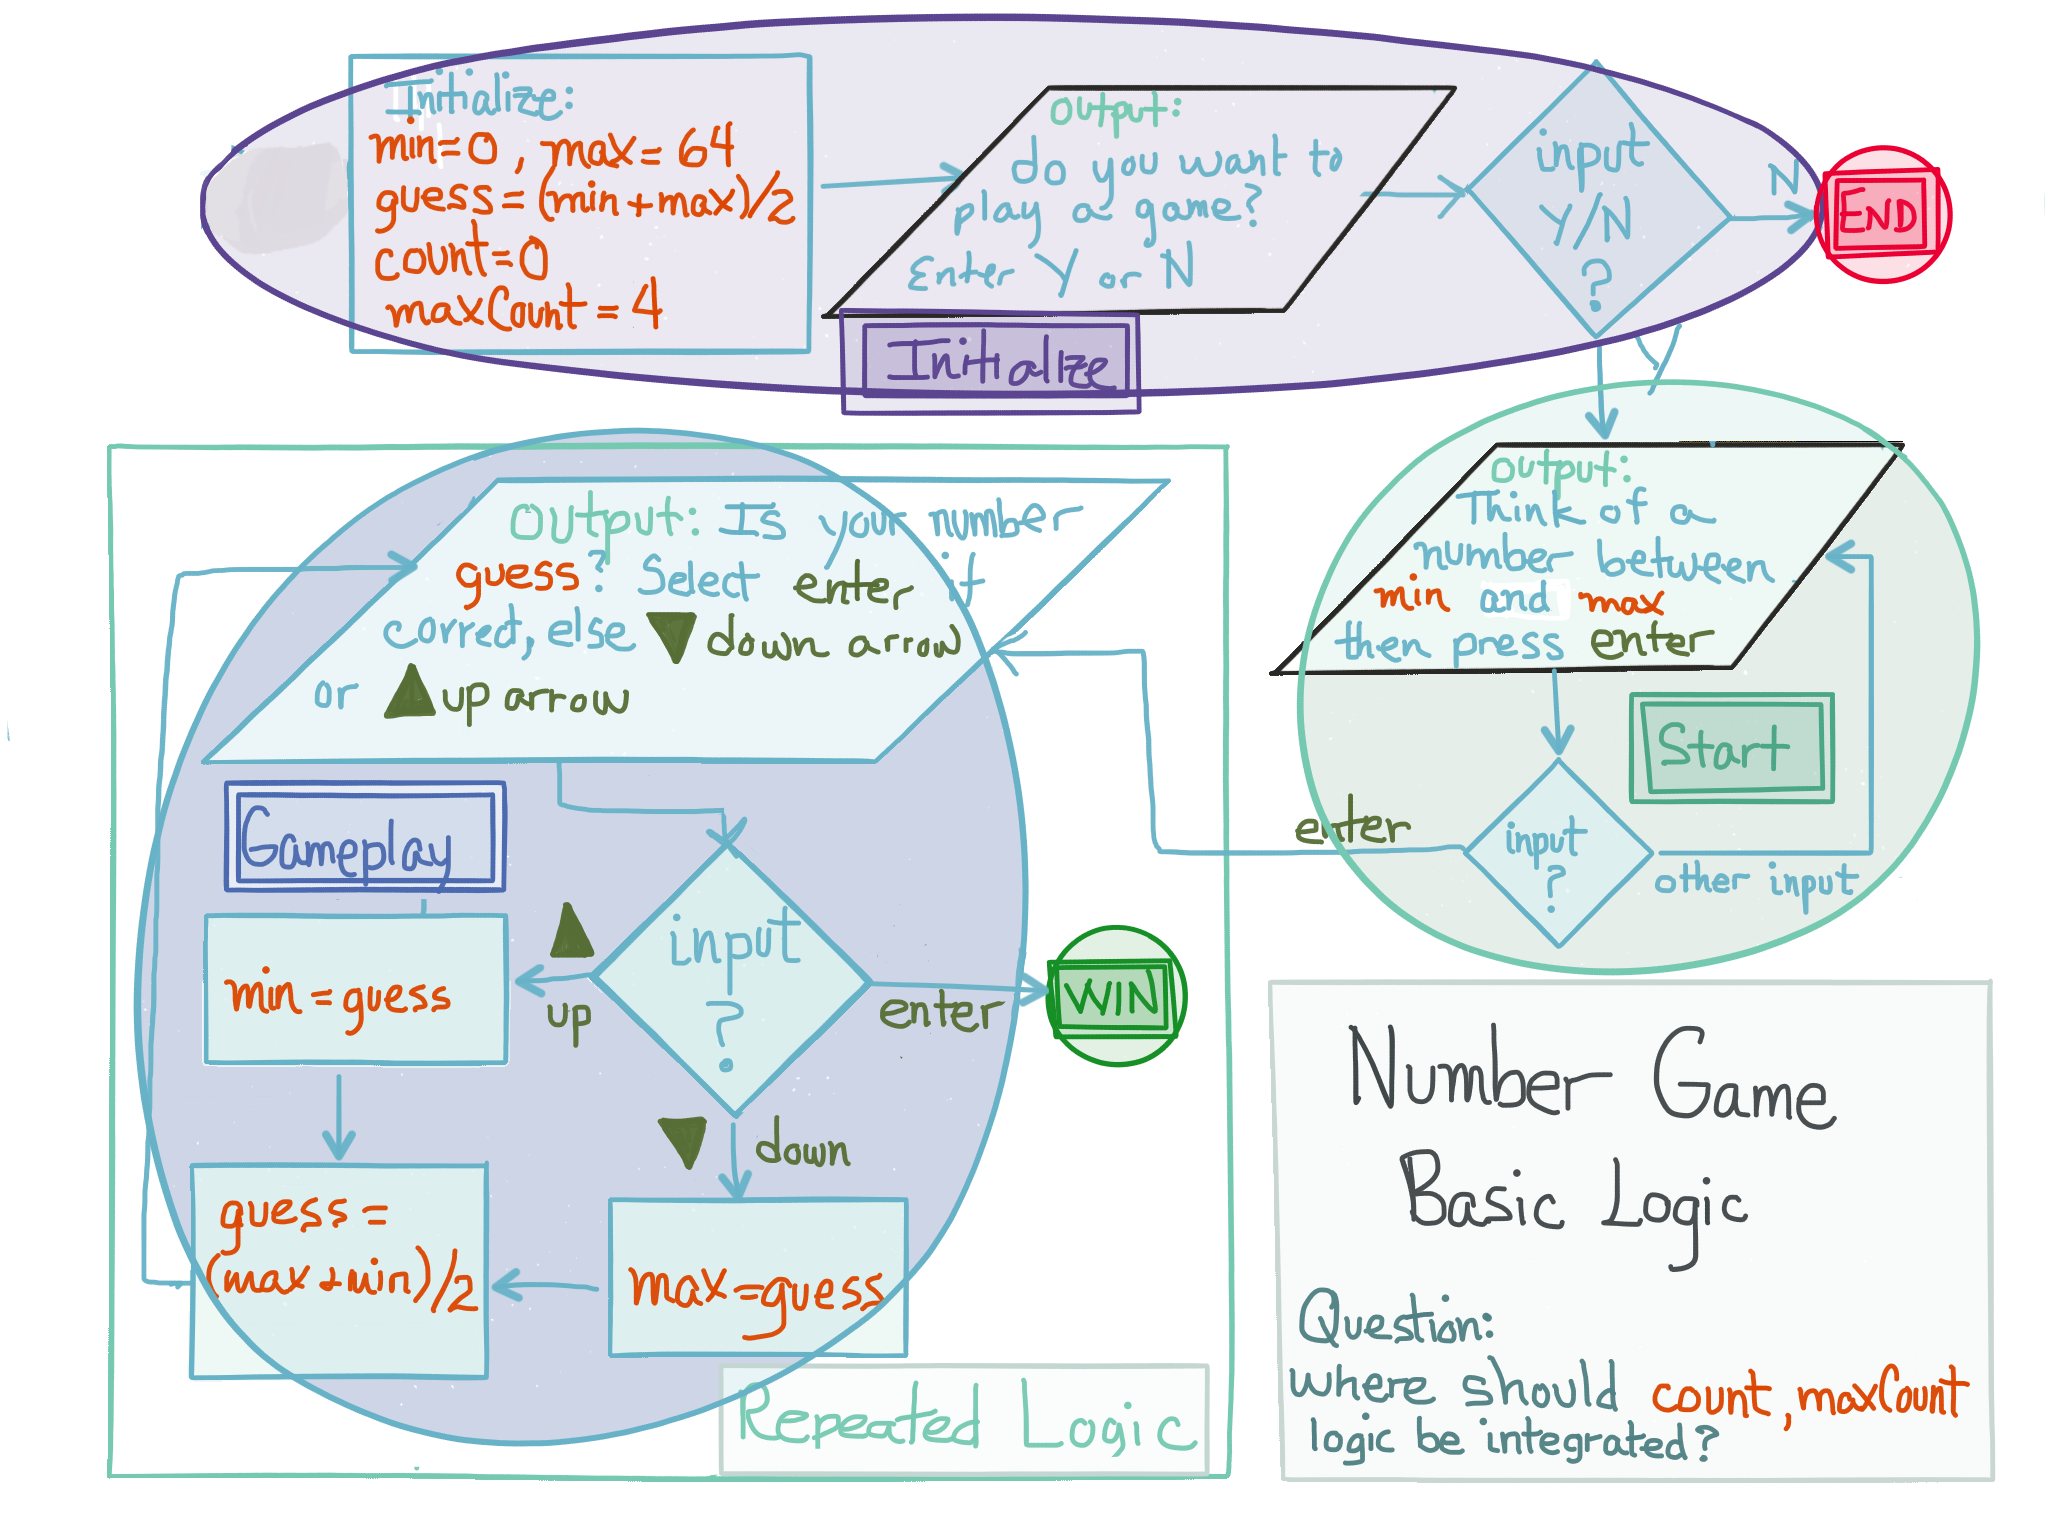 Initialize:
min=0, max=64
guess=(min+max)/2
count=0
maxCount=4
output:
do you want to
play a game?
Enter Y or N
input
Y/N
?
N
END
Initialize
Y
output:
Think of a
number between
min and max
then press enter
Start
input
?
enter
other input
Output: Is your number
guess? Select enter if
correct, else ▼ down arrow
or ▲ up arrow
Gameplay
input
?
▲
up
enter
WIN
min=guess
▼ down
guess=
(max+min)/2
max=guess
Repeated Logic
Number Game
Basic Logic
Question:
where should count, maxCount
logic be integrated?